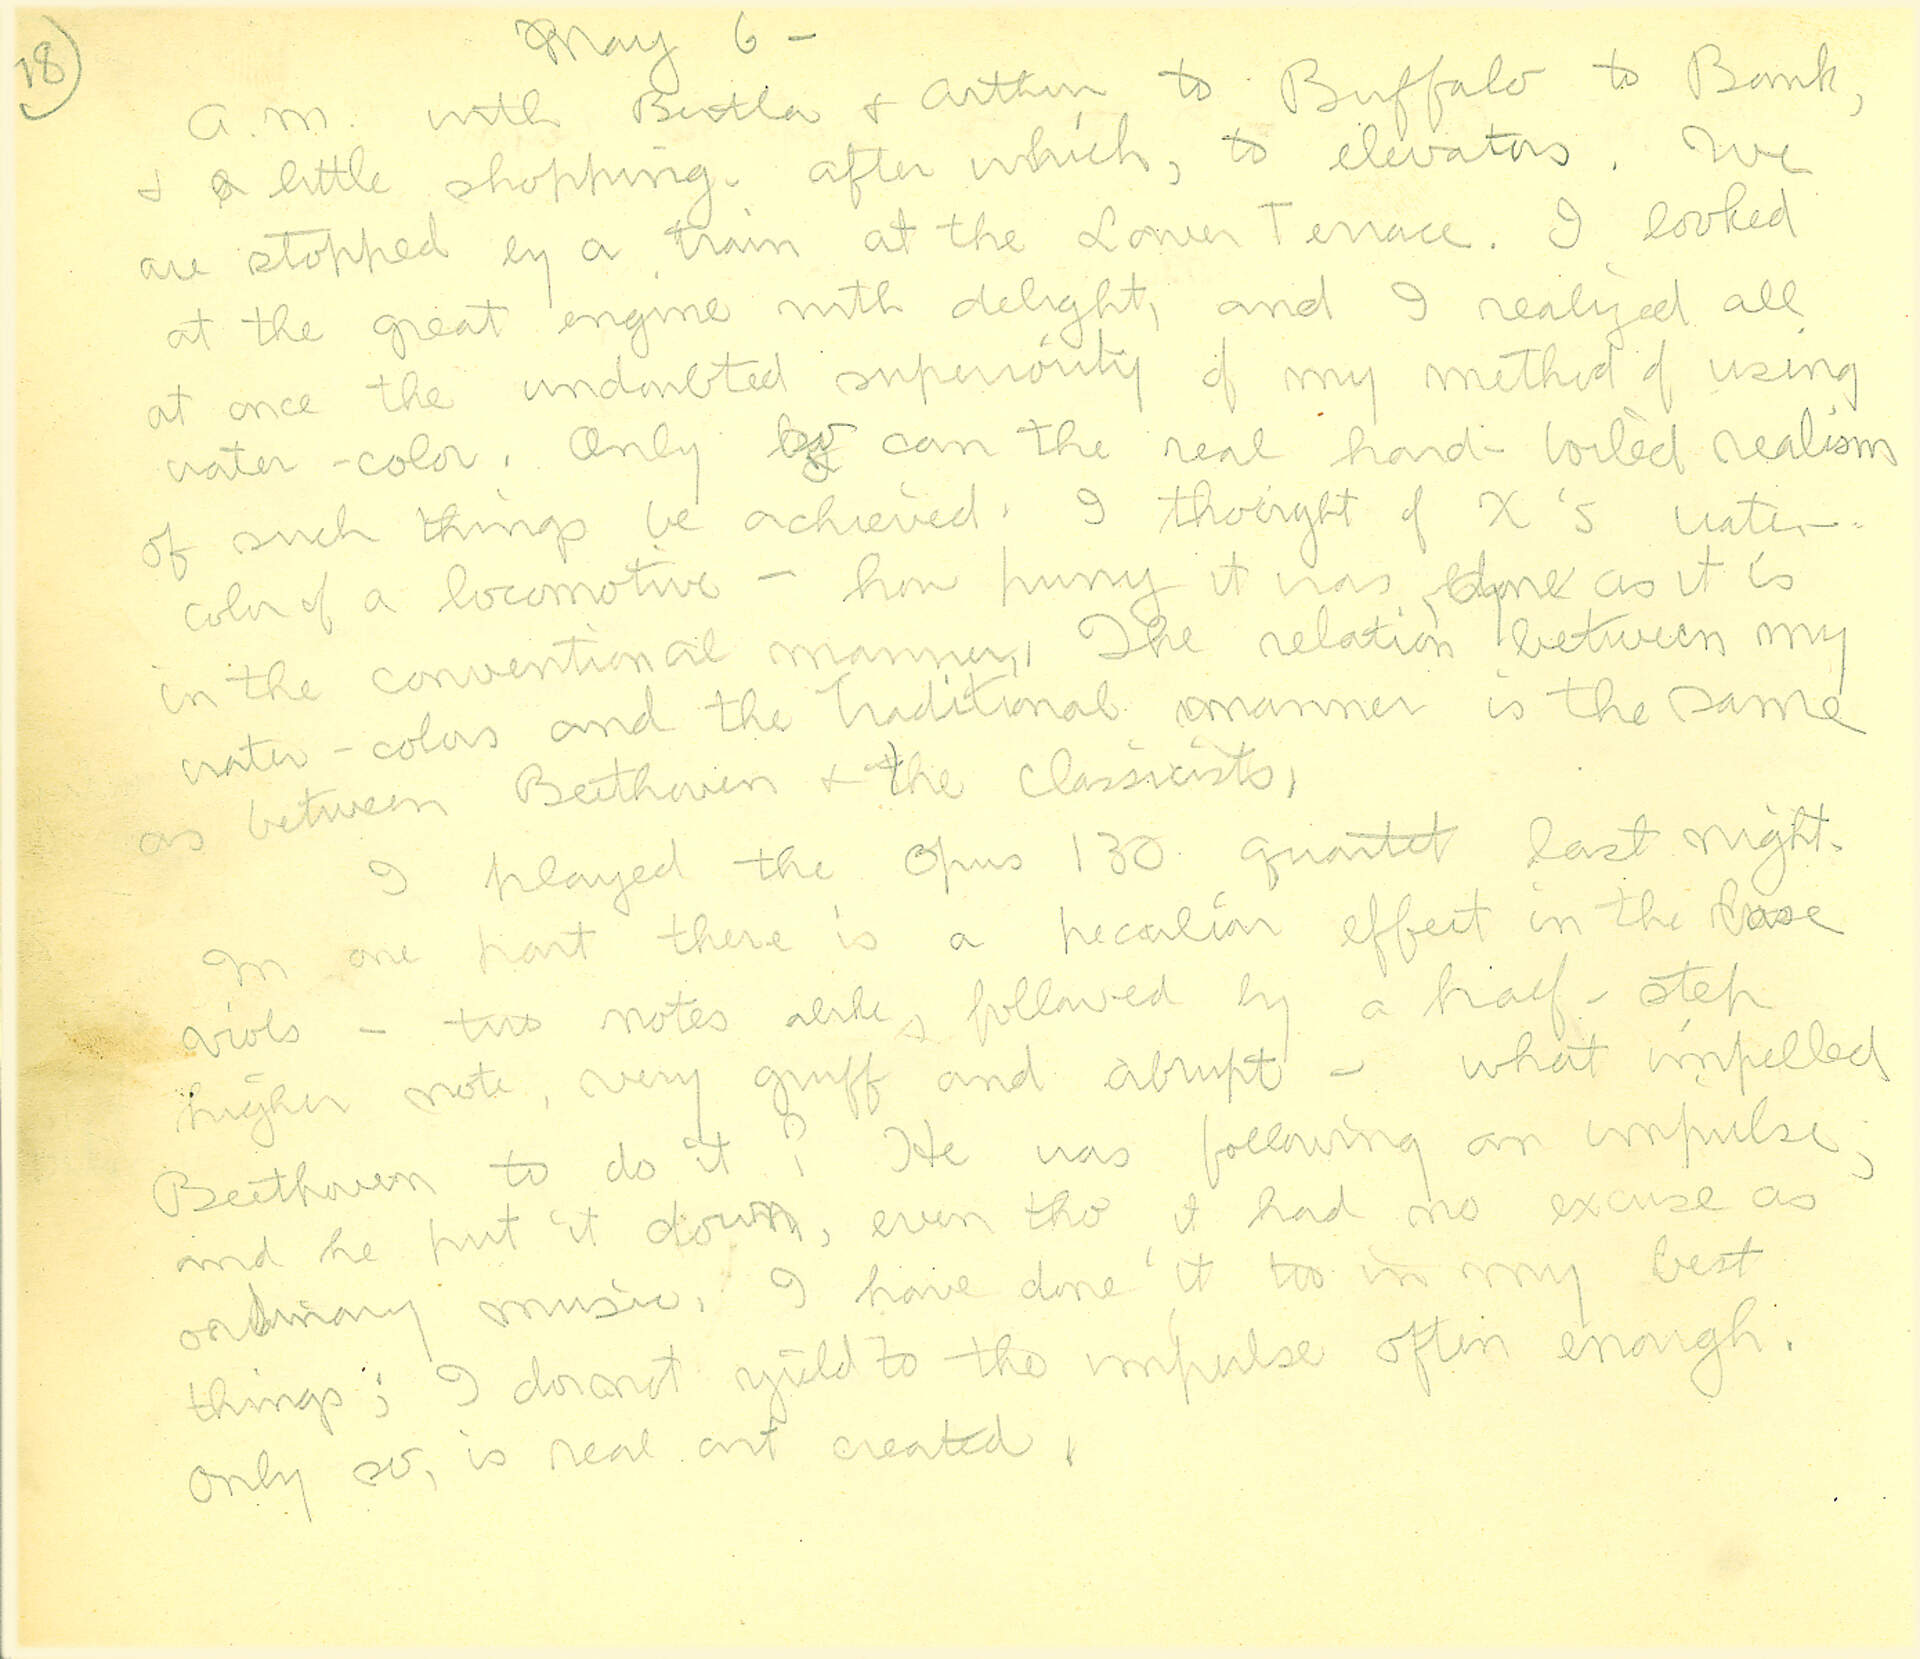 18)
May 6 –
A.M. with Bertha & Arthur to Buffalo to Bank,
& a little shopping. After which, to elevators. We
are stopped by a train at the Lower Terrace. I looked
at the great engine with delight, and I realized all
at once the undoubted superiority of my method of using
water-color. Only so can the real hard-boiled realism
of such things be achieved. I thought of X's water-
color of a locomotive – how puny it was, done as it is
in the conventional manner. The relation between my
water-colors and the traditional manner is the same
as between Beethoven & the Classicists.
I played the Opus 130 quartet last night.
In one part there is a peculiar effect in the base
viols – two notes alike, followed by a half-step
higher note, very gruff and abrupt – what impelled
Beethoven to do it? He was following an impulse,
and he put it down, even tho it had no excuse as
ordinary music. I have done it too in my best
things; I do not yield to the impulse often enough.
Only so, is real art created.